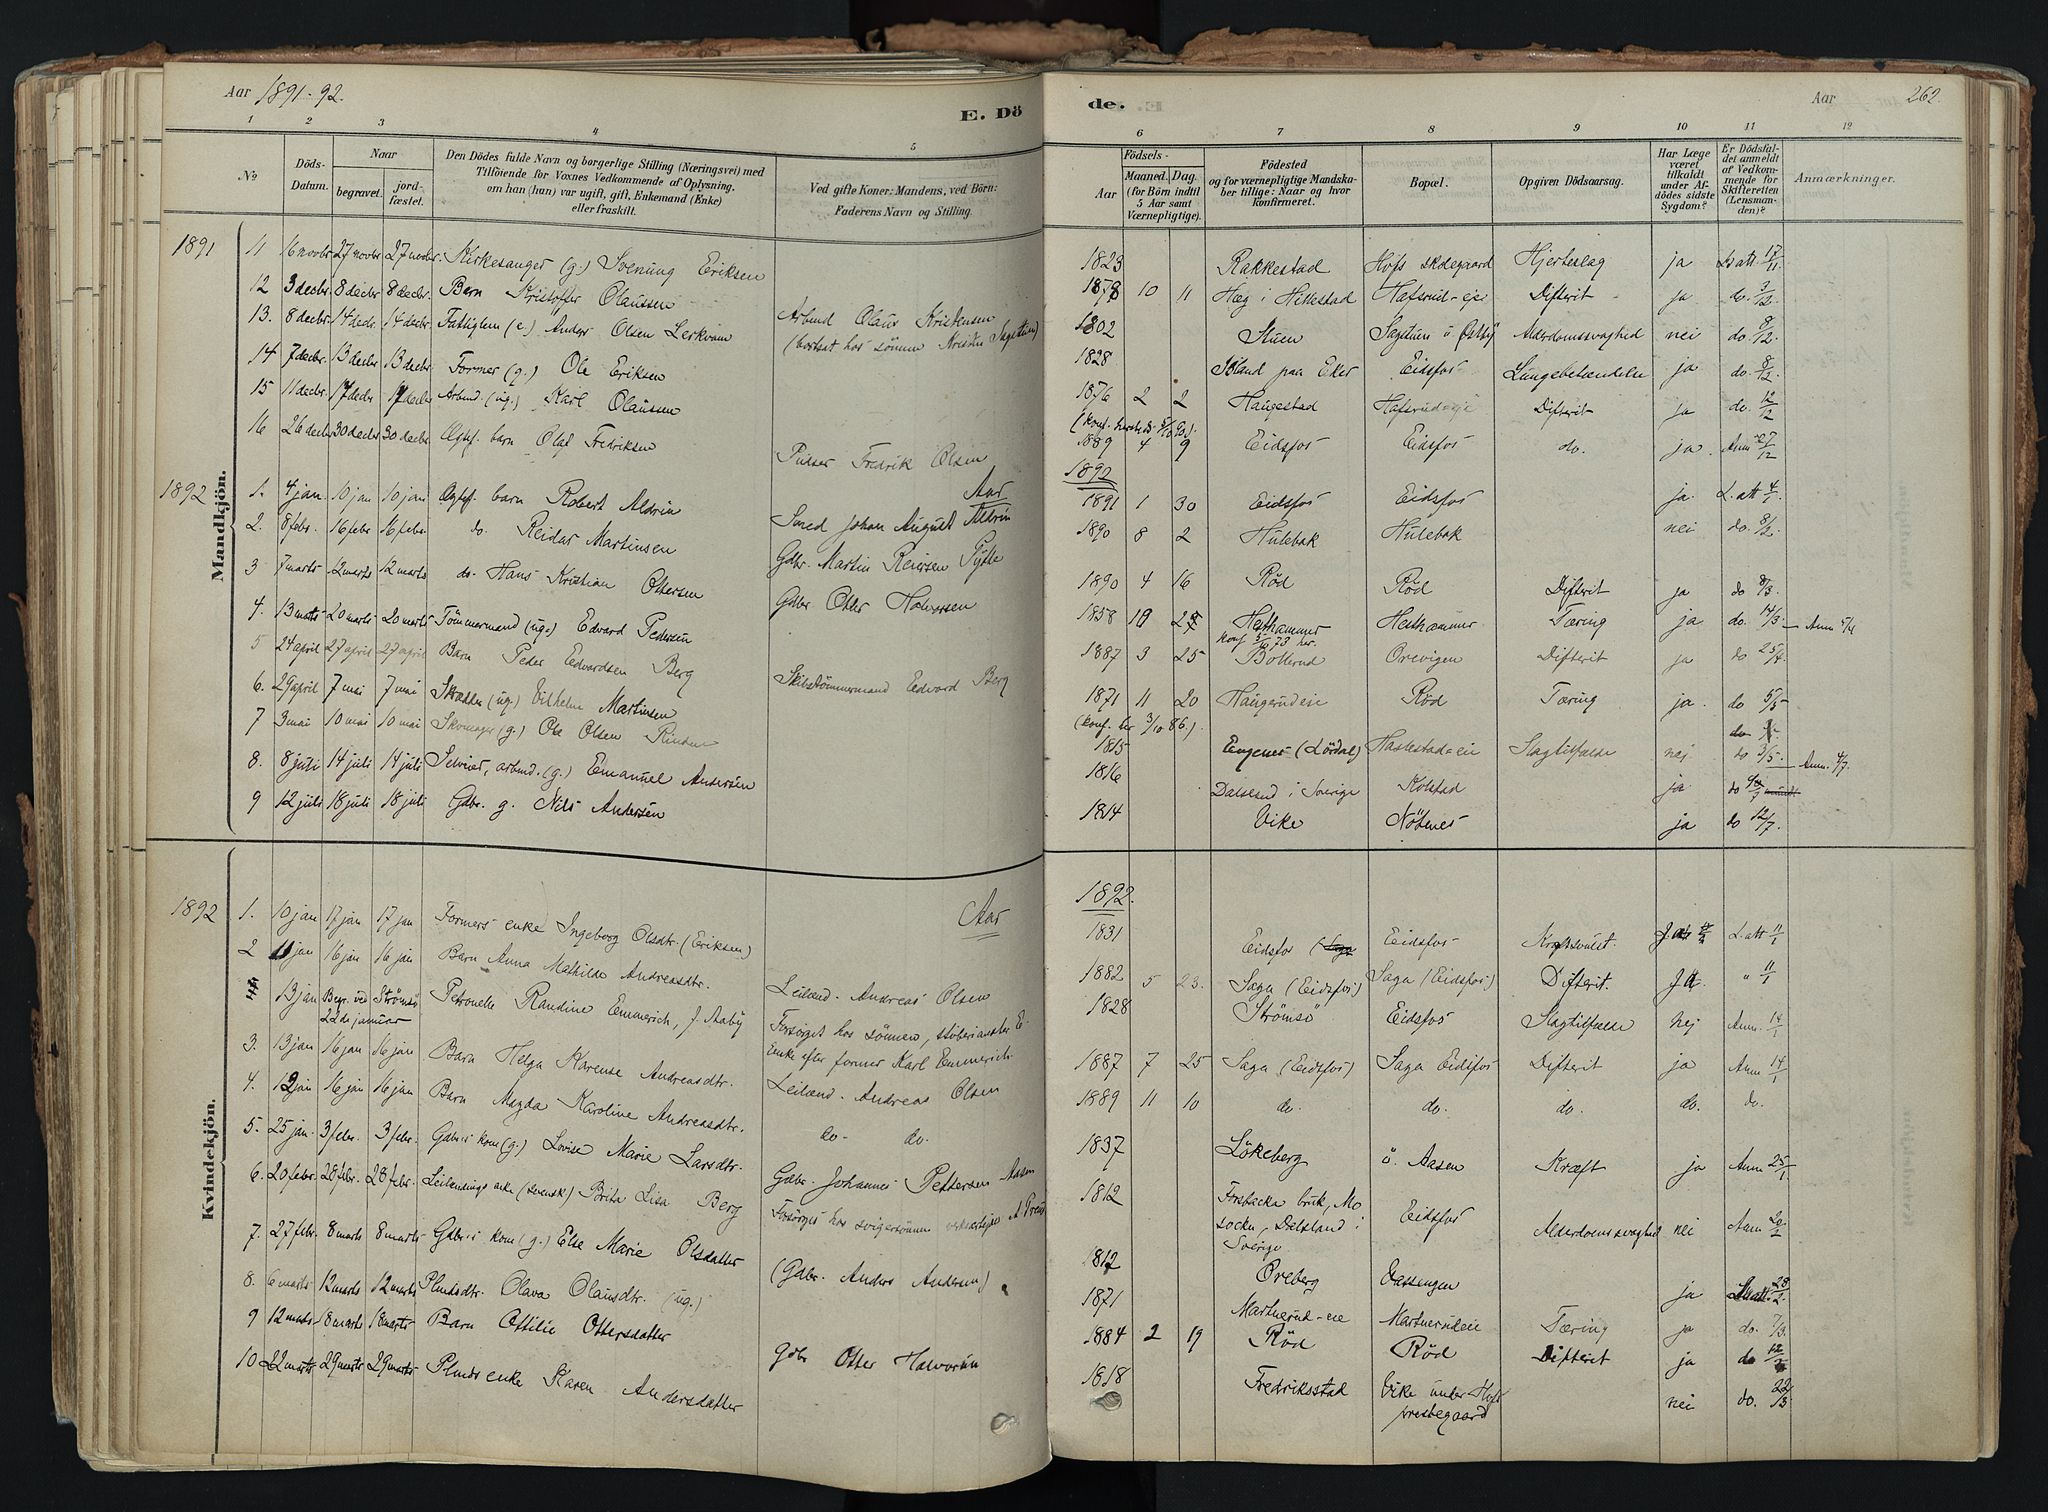 Aar 1891-92.
E. Dö
de.
Aar 262.
1 2 3 4 5 6 7 8 9 10 11 12
No
Döds-Datum.
Naar
begravet.
jord-fæstet.
Den Dödes fulde Navn og borgerlige Stilling (Næringsvei) med
Tilföiende for Voxnes Vedkommende af Oplysning,
om han (hun) var ugift, gift, Enkemand (Enke)
eller fraskilt.
Ved gifte Koner: Mandens, ved Börn:
Faderens Navn og Stilling.
Födsels-
Aar
Maaned. Dag.
(for Börn indtil
5 Aar samt
Værnepligtige).
Födested
og for værnepligtige Mandska-
ber tillige: Naar og hvor
konfirmeret.
Bopæl.
Opgiven Dödsaarsag.
Har Læge
været
tilkaldt
under Af-
dödes sidste
Sygdom?
Er Dödsfal-
det anmeldt
af Vedkom-
mende for
Skifteretten
(Lensman-
den)?
Anmærkninger.
Mandkjön.
1891 11 16 novbr 27 novbr 27 novbr. Kirkesanger (g.) Svenung Eriksen 1823 Rakkestad Hofs Hjerteslag ja L. att 17/11.
12 3 decbr. 8 decbr 8 decbr. Barn Kristoffer Olaussen Arbmd Olaus Kristensen 1878 10 11 Hæg i Hillestad Hafsrud-eje Difterit ja do. 3/12.
13. 8 decbr. 14 decbr. 14 decbr. Fattiglem (e.) Anders Olsen Lerkvam (bortsat hos sönnen Kristen Sagstuen) 1802 Stuen Sagstuen u. Alderdomssvaghed nei do. 8/12.
14 7 decbr. 13 decbr 13 decbr. Former (g.) Ole Eriksen 1828 paa Eker Eidsfos Lungebetændelse ja do. 8/12.
15 11 decbr. 17 decbr 17 decbr Arbmd. (ug.) Karl Olaussen 1876 2 2 Haugestad Hafsrudeje Difterit ja do. 12/12
(konf. 5/10 90.)
16 26 decbr 30 decbr 30 decbr. Ægtef. barn Olaf Fredriksen Pudser Fredrik Olsen 1889 4 9 Eidsfos Eidsfos do. ja. Anm 27/12
Aar 1892
1892 1. 4 jan. 10 jan 10 jan Ægtef. barn Robert Aldrin Smed Johan August Aldrin 1891 1 30 Eidsfos Eidsfos ja. L. att 4/1.
2. 8 febr. 16 febr 16 febr do. Reidar Martinsen Gdbr. Martin Reiersen Pytte 1890 8 2 Hulebak Hulebak nei do. 8/2.
3 7 marts 12 marts 12 marts do. Hans Kristian Ottersen Gdbr Otter Halvorsen 1890 4 16 Röd Röd Difterit ja do 8/3.
4. 13 marts 20 marts 20 marts Tömmermand (ug.) Edvard Pedersen 1858 Hesthammer Hesthammer Tæring ja do. 14/3. Anm 4/4
konf 73 her.
5 24 april 27 april 27 april Barn Peder Eedvardsen Berg Skibstömmermand Eedvard Berg 1887 3 25 Bollerud Orevigen Difterit ja do 25/4.
6. 29 april 7 mai 7 mai Skrædder (ug.) Vilhelm Martinsen 1871 11 20 Haugerudeie Röd Tæring ja. do 5/5
(konf. her 3/10 86.)
7 3 mai 10 mai 10 mai Skomager (g.) Ole Olsen 1815 Engenes (Lördal) Haslestad-eie Slagtilfælde nej do 3/5.
8. 8 juli 14 juli 14 juli Selveier, arbmd. (g.) Emanuel Andersen 1816 Dalsland i Sverige Kolstad ja do Anm. 4/7
9 12 juli 18 juli 18 juli Gdbr. g. Nils Andersen 1814 Vike Nötnes ja do 12/7.
Kvindekjön.
Aar 1892.
1892 1. 10 jan 17 jan 17 jan Formers enke Ingeborg Olsdtr. (Eriksen) 1831 Eidsfos Eidsfos Kræftsvulst. L. att 11/1
2 11 jan 16 jan 16 jan Barn Anna Mathilde Andreasdtr. Leilænd. Andreas Olsen 1882 5 23. Saga (Eidsfos) Saga (Eidsfos) Difterit. Ja " 11/1
13 jan Begr. ved Strömsö 22de januar Petronelle Randine Emmerich, f. Aaby Forsörget hos sönnen, stöberiarbeider E. 1828 Strömsö Eidsfos Slagtilfælde Nej Anm. 14/1
Enke efter former Karl Emmerich.
3. 13 jan 16 jan 16 jan Barn Helga Karense Andreasdtr. Leilænd. Andreas Olsen 1887 7 25 Saga (Eidsfos) Saga Eidsfos Difterit ja Anm 14/1
4. 12 jan 16 jan 16 jan Barn Magda Karoline Andreasdtr. do- do. 1889 11 10 do. do. do. do. do.
5. 25 jan. 3 febr. 3 febr. Gdbr.s kone (g.) Lovise Marie Larsdtr. Gdbr. Johannes Pettersen Aasen 1837 Lökeberg ö. Aasen Kræft ja Anm 25/1
6. 20 febr. 28 febr. 28 febr. Leilendings enke (svensk) Brita Lisa Berg Forsörges hos svigersönnen 1812 Forsbacka bruk, Mo socken, Dalsland i Sverige Eidsfos Alderdomssvaghed nei Anm 20/2
7. 27 febr. 8 marts 8 marts Gdbr.s kone (g.) Else Marie Olsdatter (Gdbr. Anders Andersen) 1817 Oreberg Vassengen ja 28/2.
8. 6 marts 12 marts 12 marts Pladsdtr. Olava Olausdtr. (ug.) 1871 Martnerud-eie Martnerudeie Tæring ja do. 7/3.
9 12 marts 18 marts 18 marts Barn Ottilie Ottersdatter Gdbr Otter Halvorsen 1884 2 19 Röd Röd Difterit ja do 12/3
10 22 marts 29 marts 29 marts Plads enke Karen Andersdatter 1818 Fredriksstad Vike under Hofs prestegaard nei do. 22/3